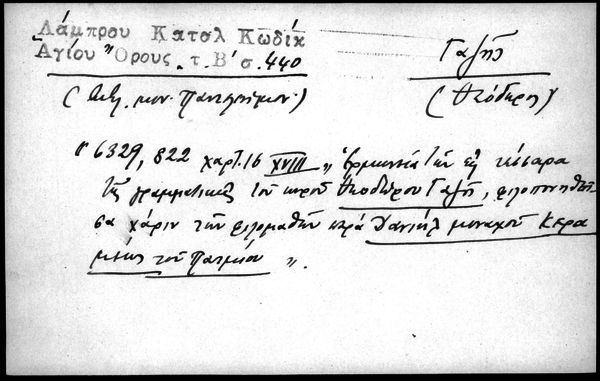 Λάμπρου Κατσλ Κωδίκ
Ἁγίου Ὄρους τ. Β' σ. 440
Γαζῆς
(Βιβλ. μον. Παντελεήμον.)
(Θεόδωρος)
"6329, 822 χαρτ. 16 XVIII „ Ἑρμηνεία τῶν εἰς τέσσαρα
τῆς γραμματικῆς τοῦ κυροῦ Θεοδώρου Γαζῆ, φιλοπονηθεῖ-
σα χάριν τῶν φιλομαθῶν παρὰ Δανιὴλ μοναχοῦ Κερα
μέως τοῦ Πατμίου „.